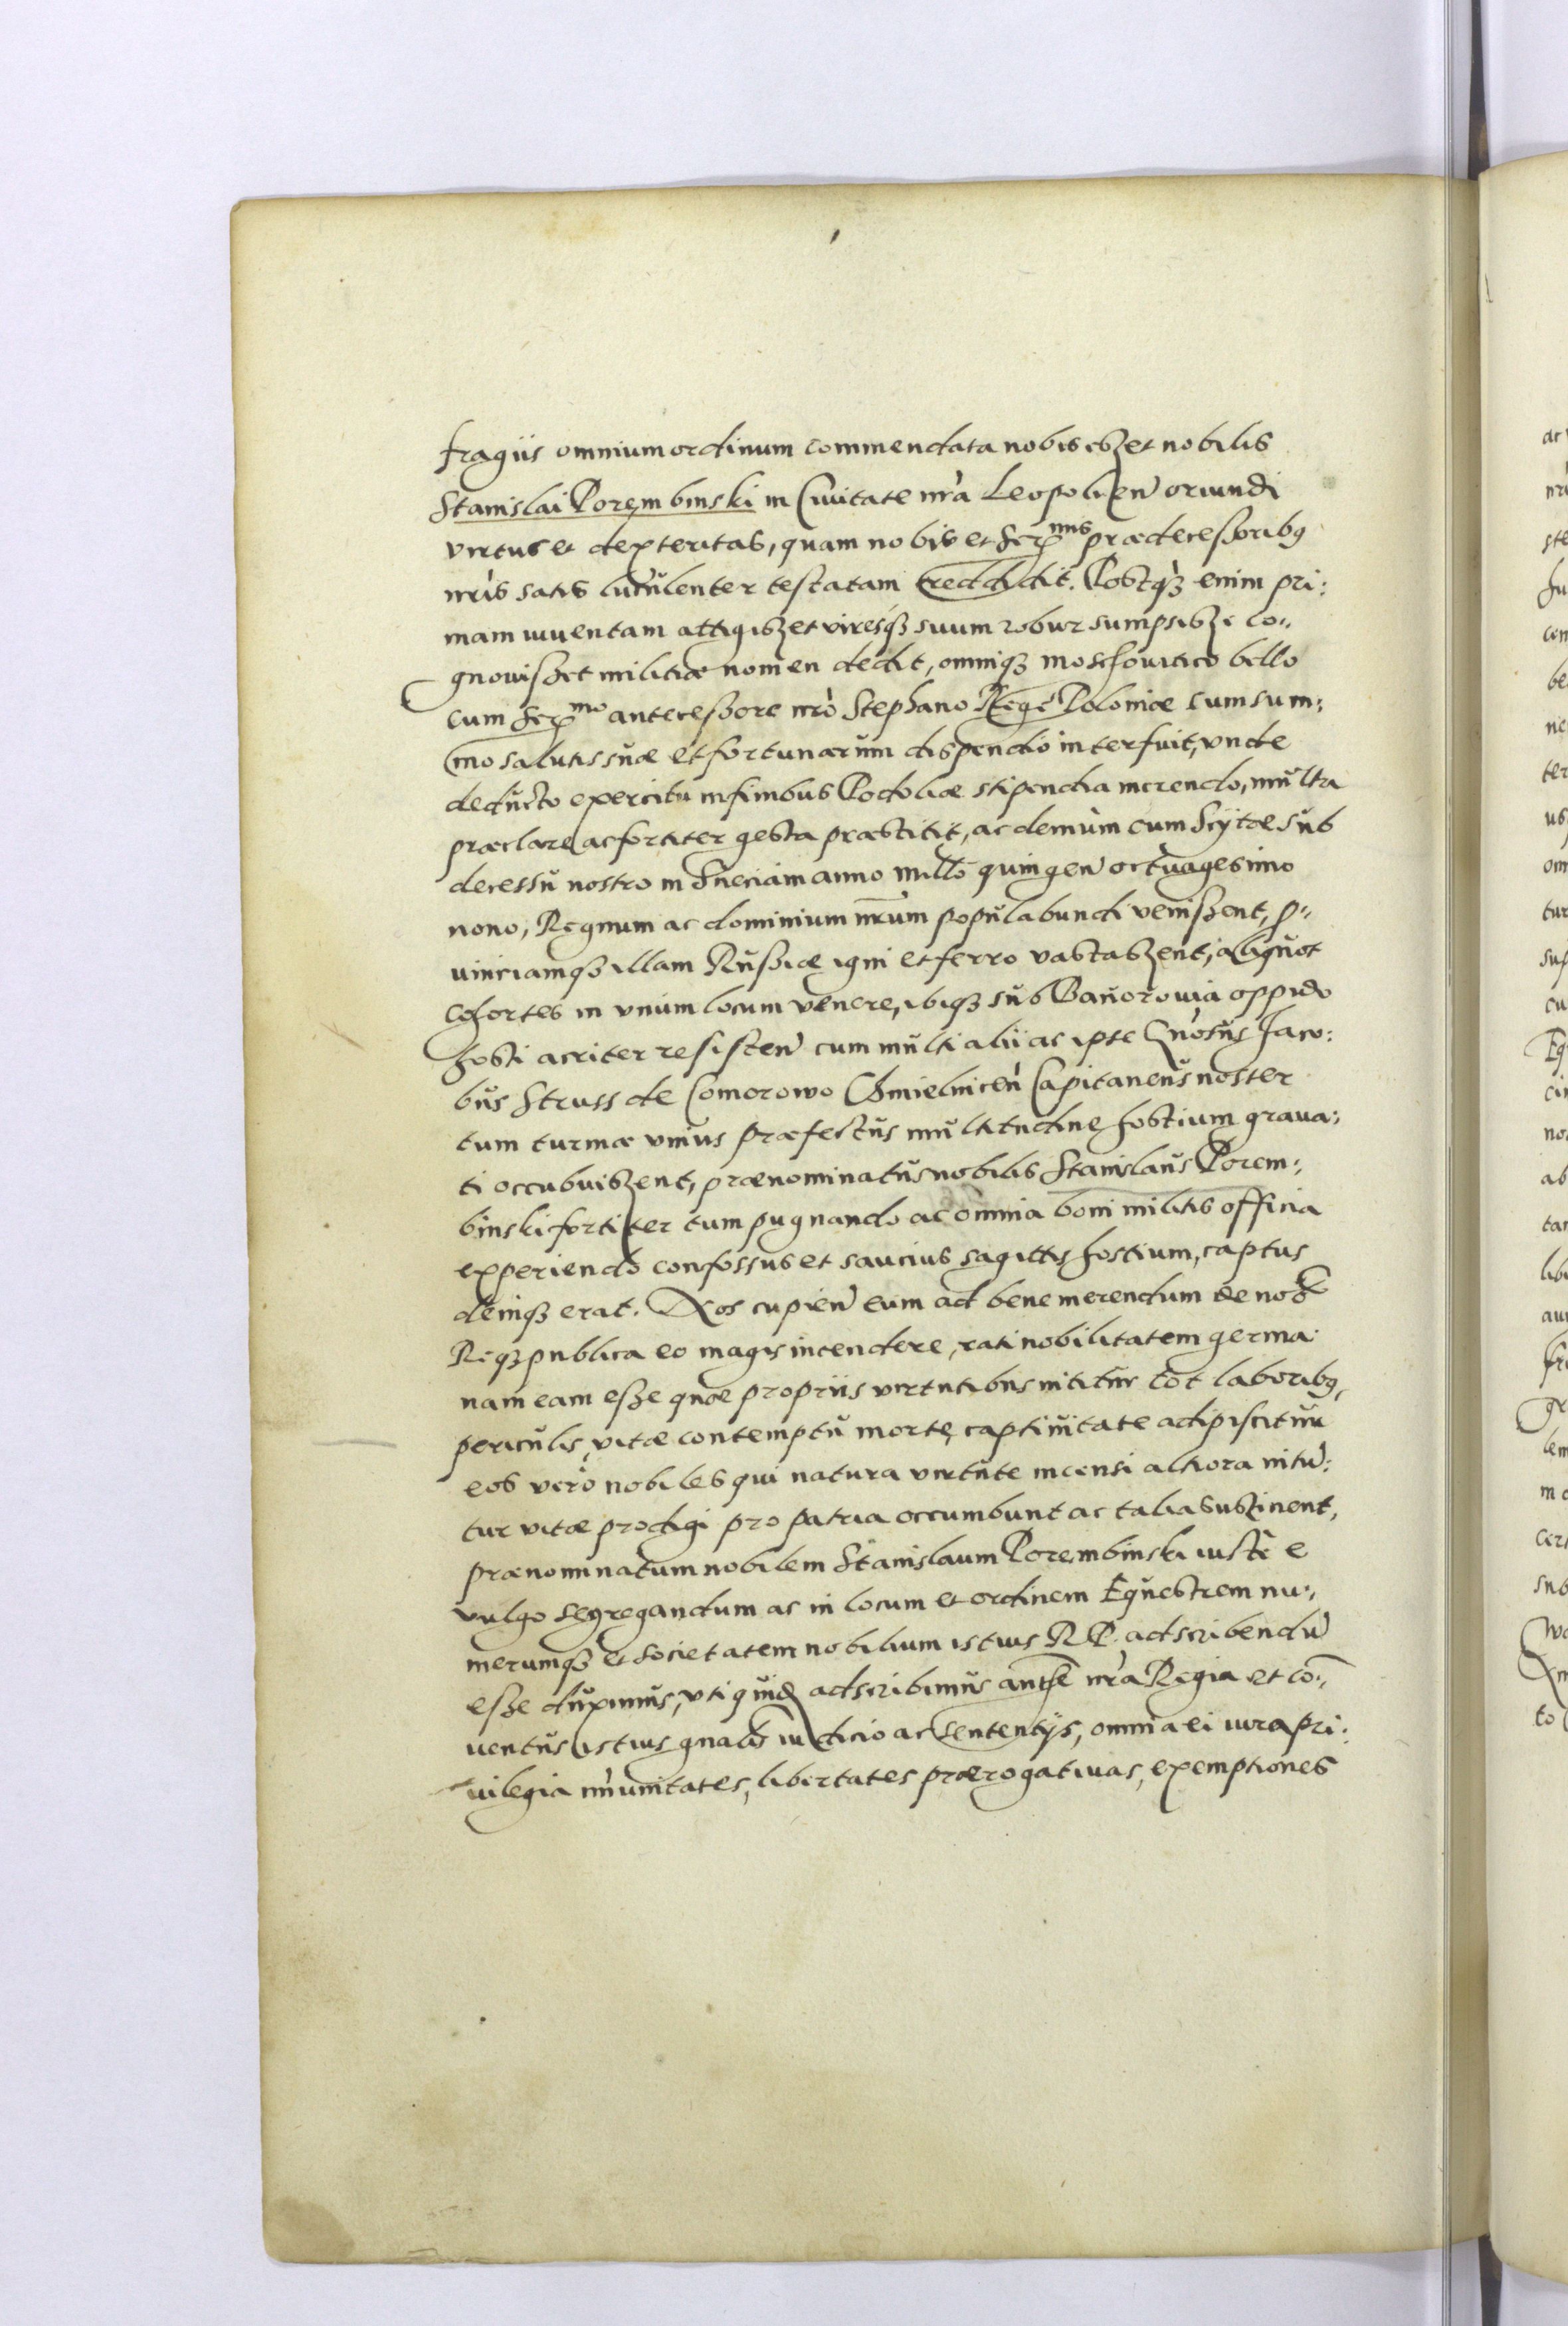 fragiis omnium ordinum commendata nobis eszet nobilis
Stanislai Porembinski in Ciuitate nrã Leopolien̄ oriundi
virtus et dexteritas, quam nobis et Ser^mis prædeceßoribꝫ
nrìs satis luculenter testatam reddidit. Postqꝫ enim pri:
mam iuuentam attigiszet viresqꝫ suum robur sumpsisze co:
gnouißet militiæ nomen dedit, omniqꝫ moschouitico bello
cum Ser^mo anteceßore nrò Stephano Rege Poloniæ cum sum:
mo salutis suæ et fortunarum dispendio interfuit, vnde
deducto exercitu in finibus Podoliæ stipendia merendo, multa
præclare ac fortiter gesta præstitit, ac demum cum Scijtæ sub
decessu nostro in Sueciam anno millo quingen̄ octuagesimo
nono, Regnum ac dominium nrūm populabundi venißent, p:
uinciamqꝫ illam Rußiæ igni et ferro vastaszent, aliquot
cohortes in vnum locum venere, ibiqꝫ sub Bauorouia oppido
hosti acriter resisten̄ cum multi alii ac ipse Gn̄osus Jaco:
bus Struss de Comorowo Chmielnicen̄ Capitaneus noster
tum turmæ vnius præfectus multitudine hostium graua:
ti occubuiszent, prænominatus nobilis Stanislaus Porem:
binski fortiter tum pugnando ac omnia boni militis officia
experiendo confossus et saucius sagittis hostium, captus
deinqꝫ erat. Nos cupien̄ eum ad bene merendum de nob
Reqꝫ publica eo magis incendere, rati nobilitatem germa
nam eam esze quæ propriis virtutibus nititur tot laboribꝫ,
periculis, vitæ contemptu morte, captiuitate adipiscitur
eos vero nobiles qui natura virtute incensi altiora nitū:
tur vitæ prodigi pro patria occumbunt ac talia sustinent,
prænominatum nobilem Stanislaum Porembinski iuste e
vulgo segregandum ac in locum et ordinem Equestrem nu:
merumqꝫ et societatem nobilium istius R P. adscribendū
eße duximus, vti quidē adscribimus authē nrã Regia et co:
uentus istius gnalis iudicio ac sententijs, omnia ei iura pri:
uilegia im̄unitates, libertates prærogatiuas, exemptiones